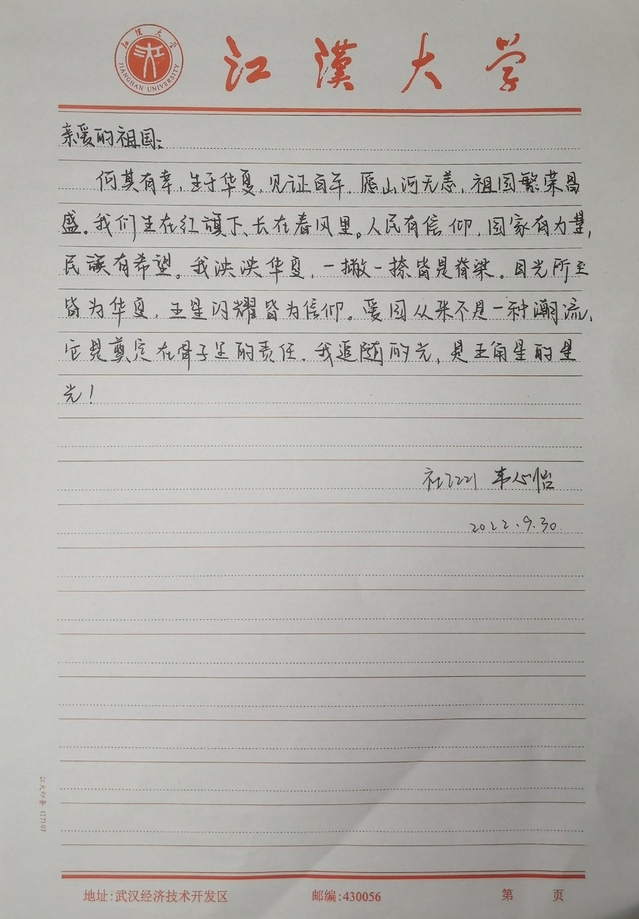 江汉大学
JIANGHAN UNIVERSITY
江漢大学
亲爱的祖国:
何其有幸,生于华夏,见证百年,愿山河无恙,祖国繁荣昌
盛。我们生在红旗下、长在春风里。人民有信仰,国家有力量,
民族有希望。我泱泱华夏,一撇一捺皆是脊梁。目光所至
皆为华夏,五星闪耀皆为信仰。爱国从来不是一种潮流,
它是奠定在骨子里的责任。我追随的光,是五角星的星
光!
社工221 韦心怡
2022.9.30
地址:武汉经济技术开发区 邮编:430056 第 页